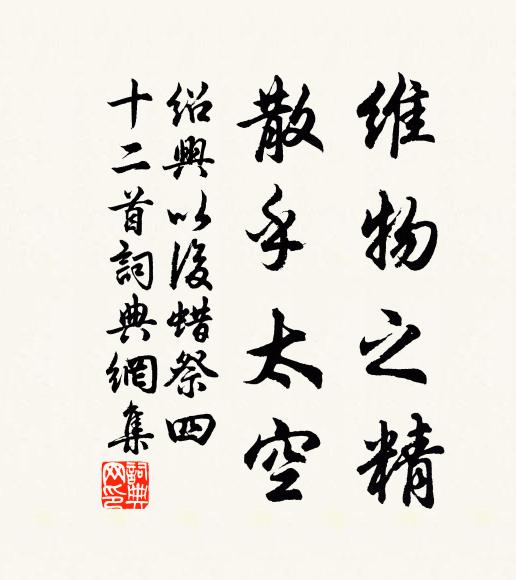 維物之精
散乎太空
紹興以後蜡祭四
十二首詞典網集
詞典网印